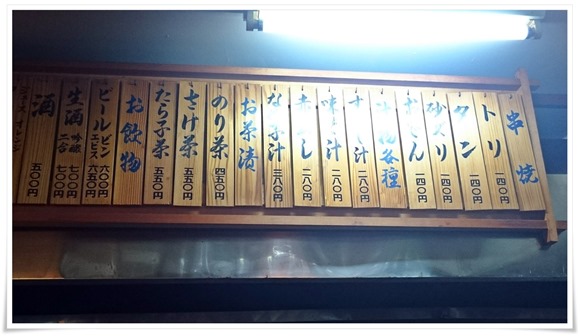 串焼
トリ 一四〇円
タン 一四〇円
砂ズリ 一四〇円
一四〇円
汁物各種
一八〇円
一八〇円
赤だし 一八〇円
なめこ汁 三八〇円
お茶漬
のり茶 四五〇円
さけ茶 五五〇円
たら子茶 五五〇円
お飲物
ビール ビン 六〇〇円 エビス 六五〇円
生酒 吟醸 七〇〇円 二合 七〇〇円
酒 五〇〇円